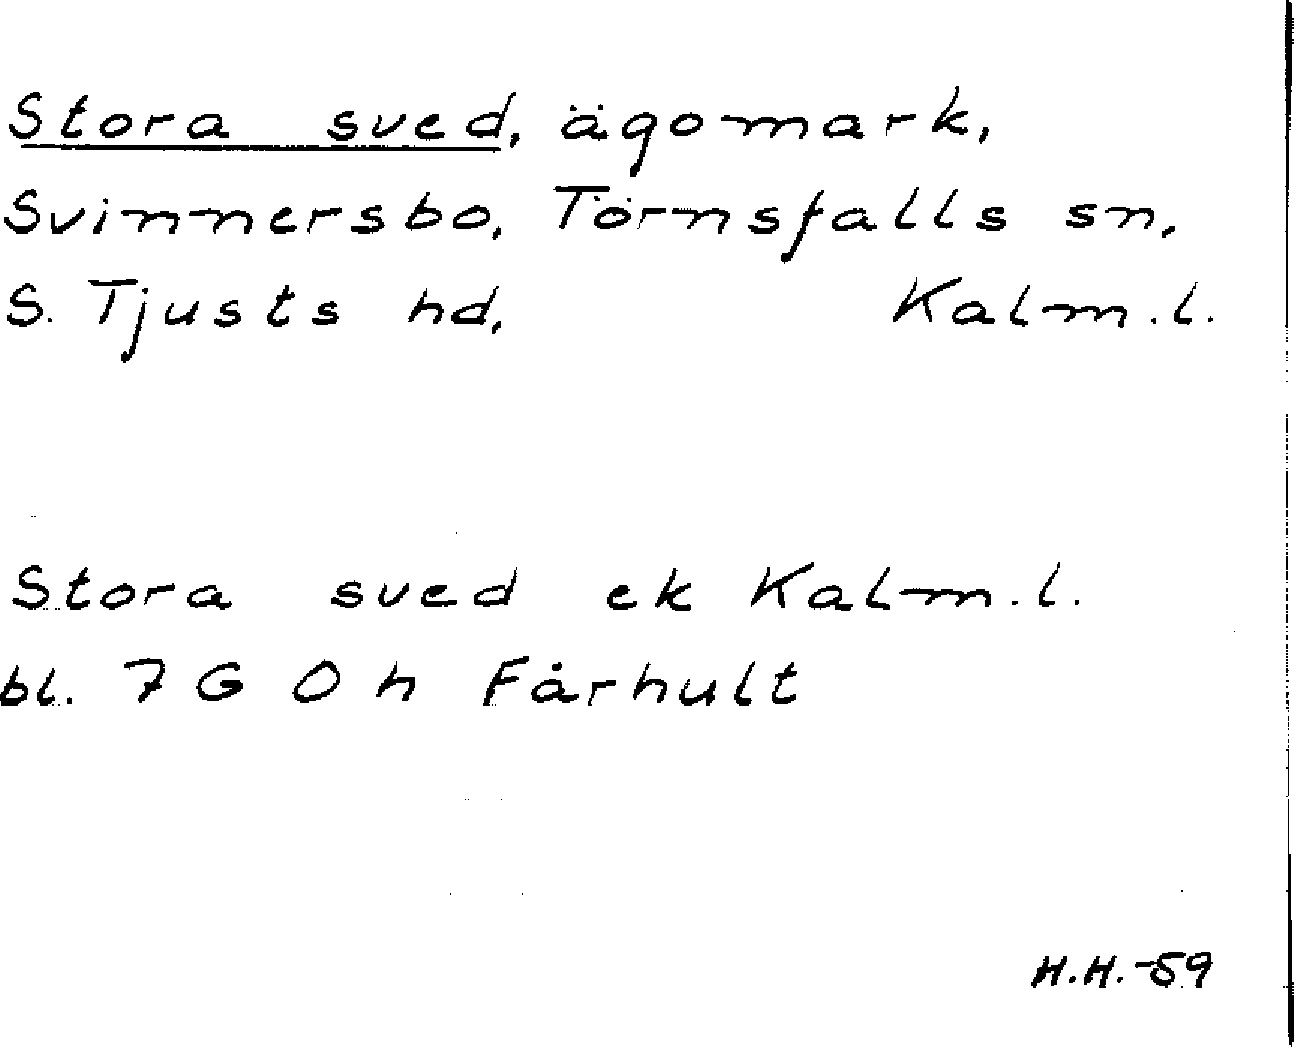 Stora sved, ägomark,
Svinnersbo, Törnsfalls sn,
S. Tjusts hd, Kalm.l.
Stora sved ek Kalm.l.
bl. 7 G O h Fårhult
H.H.-59